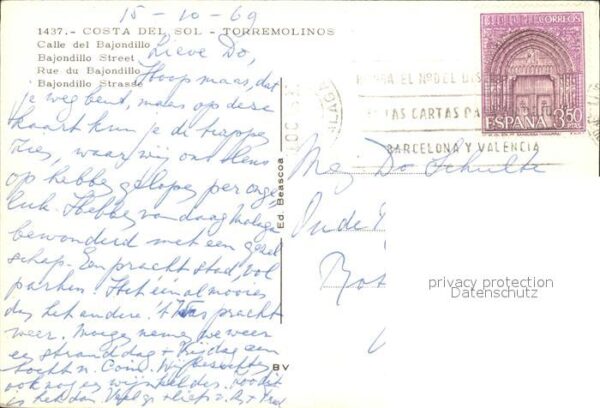 15-10-69
1437.- COSTA DEL SOL - TORREMOLINOS
Calle del Bajondillo
Bajondillo Street
Rue du Bajondillo
Bajondillo Strasse
Lieve Do,
Hoop maar, dat
je weg bent, maar op deze
kaart kun je de trappe
zien, waar wij ons
op hebbe gelope per onge-
luk. Hebbe vandaag Malaga
bewonderd met een gezel-
schap. Een prachtstad, vol
parken. Het één al mooier
dan het andere. 't Was pracht
weer. Morge neme we weer
een stranddag + Vrijdag een
tocht n. Coin. Wij
ook nog
is het dan. v.
Ed. Beascoa
BV
CORREOS
ESPAÑA 3,50
EL Nº DEL DIS
LAS CARTAS PA
BARCELONA Y VALENCIA
Mej Do Schulte
Oude
Rot
privacy protection
Datenschutz